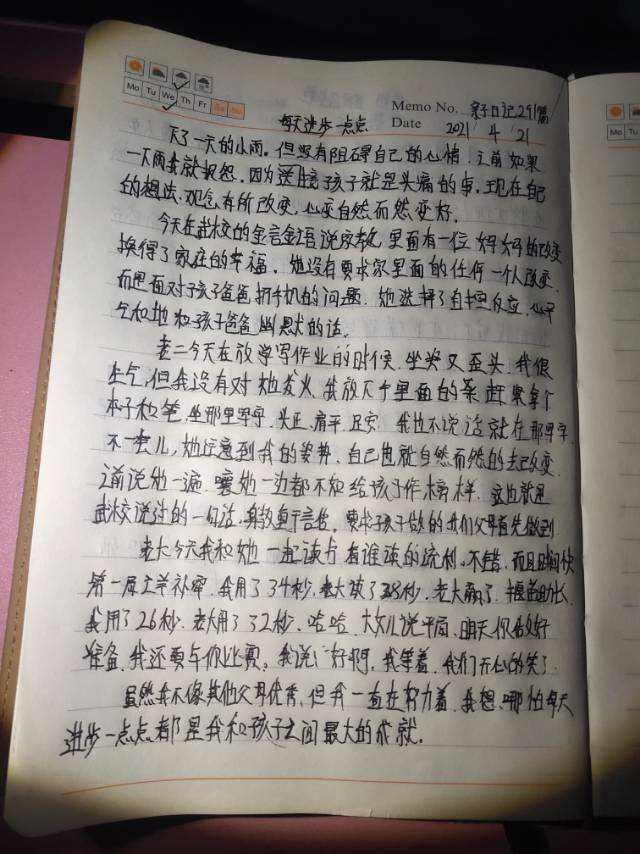 Mo Tu We Th Fr Sa Su
Memo No. 亲子日记291篇
每天进步一点点
Date 2021 4 21
下了一天的小雨。但没有阻碍自己的心情.之前如果
一下雨我就抱怨.因为送孩子就是头痛的事.现在自己
的想法.观念有所改变,心变自然而然变好.
今天在武校的金言金语说家教,里面有一位妈妈的改变
换得了家庭的幸福.她没有要求家里面的任何一个人改变.
而是面对于孩子爸爸玩手机的问题.她选择了自我反应.心平
气和地和孩子爸爸幽默的话.
老二今天在放学写作业的时候.坐姿又歪头.我很
生气,但我没有对她发火.我放下手里面的菜.赶紧拿个
本子和笔.坐那里写字.头正.肩平.足安.我也不说话就在那写字.
不一会儿,她注意到我的姿势.自己也就自然而然的去改变.
之前说她一遍.嚷她一边都不如给孩子作榜样.这也就是
武校说过的一句话.身教重于言传.要求孩子做的我们父母首先做到
老大今天我和她一起读行看谁读的流利.不错.而且时间快
第一局文羊补牢.我用了34秒.老大读了28秒.老大赢了.揠苗助长
我用了26秒.老大用了32秒.哈哈.大女儿说平局.明天你做好
准备.我还要与你比赛。我说:好啊.我等着.我们开心的笑了.
虽然我不像其他父母优秀.但我一直在努力着.我想.哪怕每天
进步一点点都是我和孩子之间最大的成就.